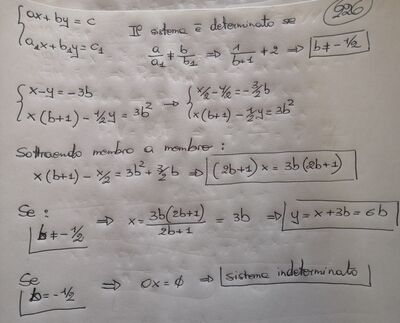 226
{ax+by=c
{a₁x+b₁y=c₁
Il sistema è determinato se
a/a₁ ≠ b/b₁ ⇒ 1/(b+1) ≠ 2 ⇒ b≠-1/2
{x-y=-3b
{x(b+1)-1/2y=3b²
→ {x/2-y/2=-3/2b
{x(b+1)-1/2y=3b²
Sottraendo membro a membro:
x(b+1)-x/2=3b²+3/2b ⇒ (2b+1)x=3b(2b+1)
Se:
b≠-1/2 ⇒ x=3b(2b+1)/(2b+1)=3b ⇒ y=x+3b=6b
Se
b=-1/2 ⇒ 0x=∅ ⇒ sistema indeterminato